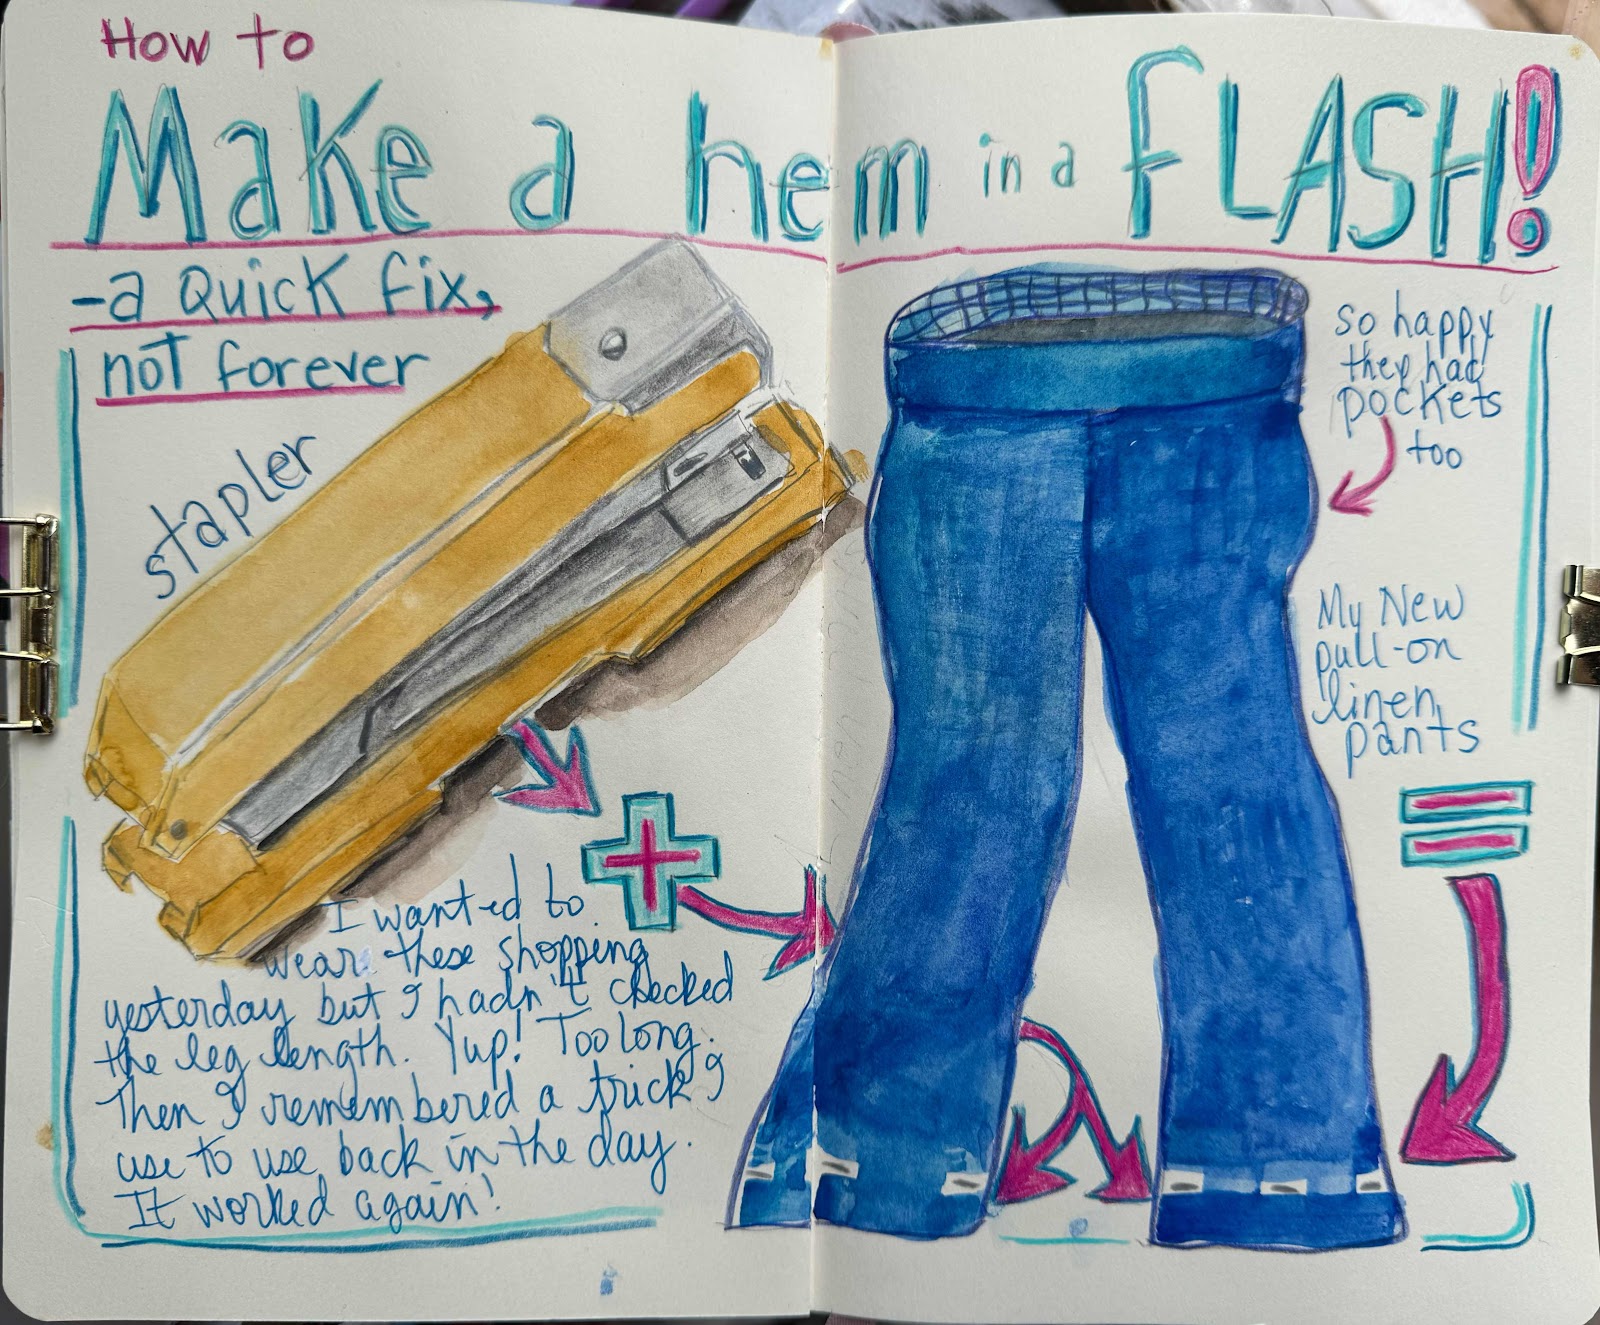 How to
Make a hem in a FLASH!
-a Quick fix,
not forever
stapler
so happy
they had
pockets
too
My New
pull-on
linen
pants
I wanted to
wear these shopping
yesterday but I hadn't checked
the leg length. Yup! Too long.
Then I remembered a trick I
use to use back in the day.
It worked again!